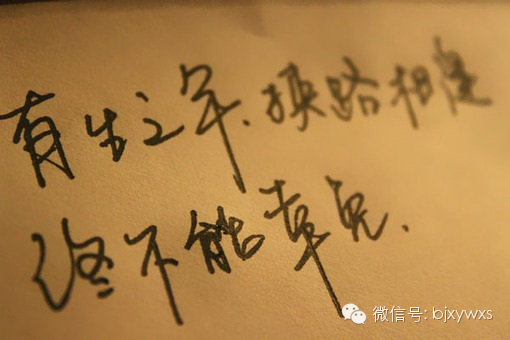 有生之年、狭路相逢
终不能幸免.
微信号: bjxywxs